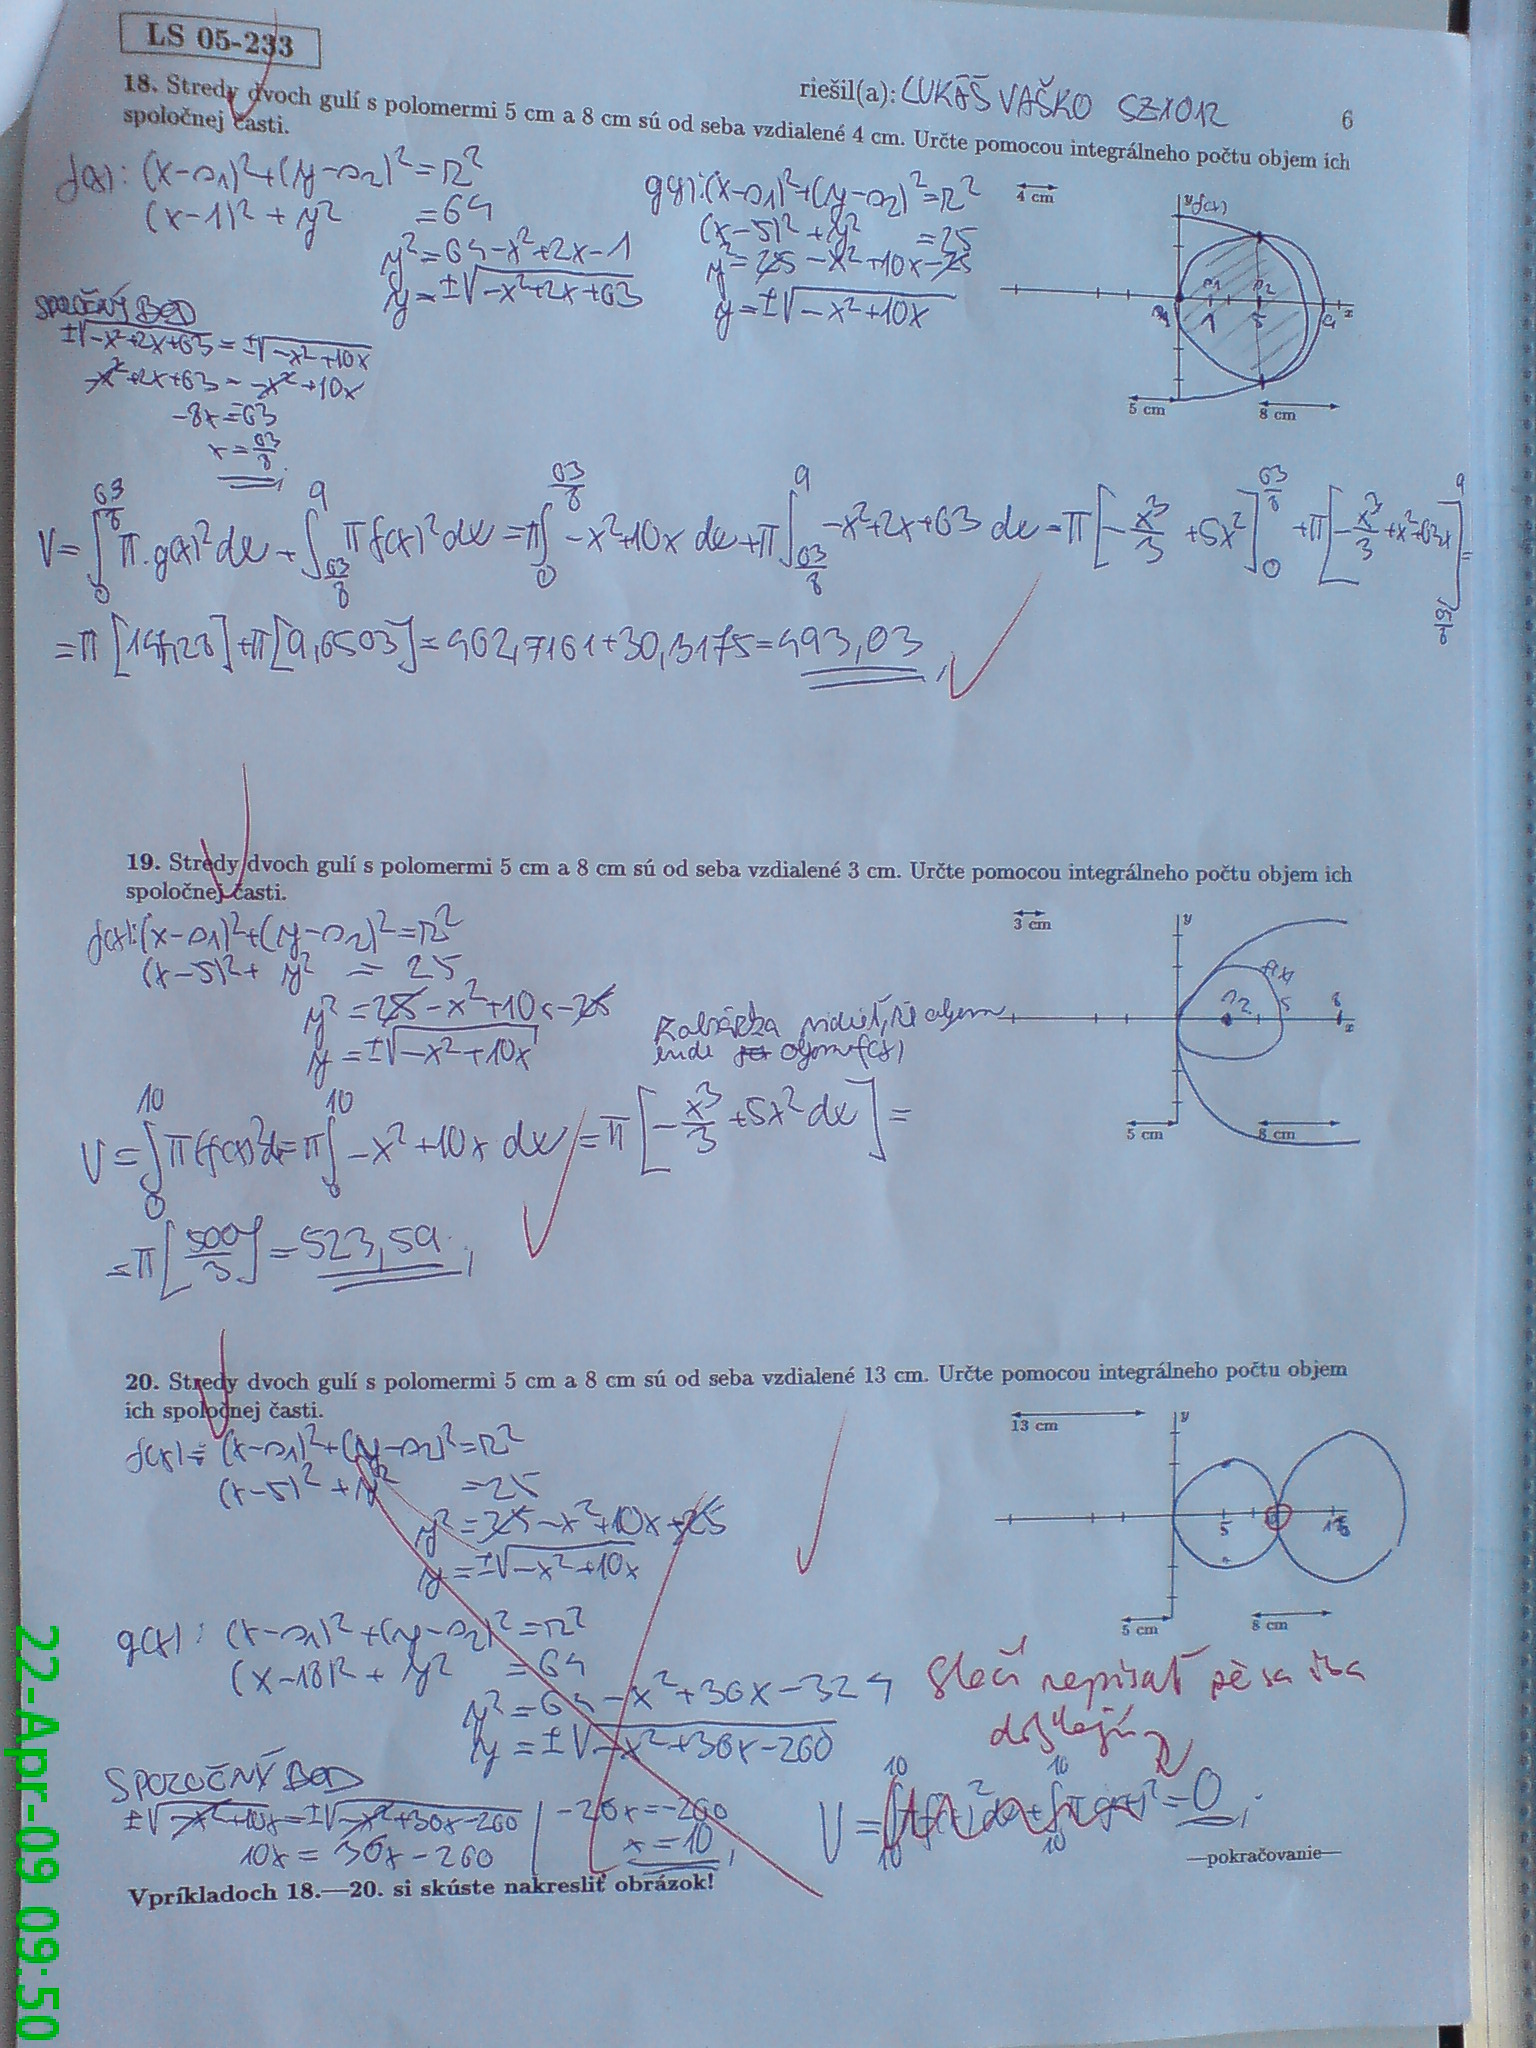 LS 05-233
riešil(a): LUKÁŠ VAŠKO SZ1012
6
18. Stredy dvoch gulí s polomermi 5 cm a 8 cm sú od seba vzdialené 4 cm. Určte pomocou integrálneho počtu objem ich
spoločnej časti.
f(x): (x-s₁)²+(y-s₂)²=r²
(x-1)²+y² =64
y²=64-x²+2x-1
y=±√-x²+2x+63
g(x):(x-s₁)²+(y-s₂)²=r²
(x-5)²+y² =25
y²=25-x²+10x-25
y=±√-x²+10x
4 cm
y f(x)
1 5 9 x
5 cm
8 cm
SPOLOČNÝ BOD
±√-x²+2x+63=±√-x²+10x
-x²+2x+63=-x²+10x
-8x=63
x=63/8
V=∫₀^(63/8) π.g(x)²dx+∫_(63/8)^9 πf(x)²dx=π∫₀^(63/8) -x²+10x dx+π∫_(63/8)^9 -x²+2x+63 dx=π[-x³/3+5x²]₀^(63/8)+π[-x³/3+x²+63x]_(63/8)^9=
=π[147,28]+π[9,6503]=462,7161+30,3175=493,03
19. Stredy dvoch gulí s polomermi 5 cm a 8 cm sú od seba vzdialené 3 cm. Určte pomocou integrálneho počtu objem ich
spoločnej časti.
f(x):(x-s₁)²+(y-s₂)²=r²
(x-5)²+y² = 25
y²=25-x²+10x-25
y=±√-x²+10x
3 cm
y
f(x)
5 8 x
5 cm
8 cm
objem f(x)
V=∫₀^10 π(f(x))²dx=π∫₀^10 -x²+10x dx=π[-x³/3+5x²dx]=
=π[500/3]=523,59
20. Stredy dvoch gulí s polomermi 5 cm a 8 cm sú od seba vzdialené 13 cm. Určte pomocou integrálneho počtu objem
ich spoločnej časti.
f(x)= (x-s₁)²+(y-s₂)²=r²
(x-5)²+y² =25
y²=25-x²+10x-25
y=±√-x²+10x
13 cm
y
5
5 cm
8 cm
g(x): (x-s₁)²+(y-s₂)²=r²
(x-18)²+y² =64
y²=64-x²+36x-324
y=±√-x²+36x-260
Stačí napísať že sa iba
dotýkajú
SPOLOČNÝ BOD
±√-x²+10x=±√-x²+36x-260
10x=36x-260
-26x=-260
x=10
V= =0
—pokračovanie—
Vpríkladoch 18.—20. si skúste nakresliť obrázok!
22-Apr-09 09:50